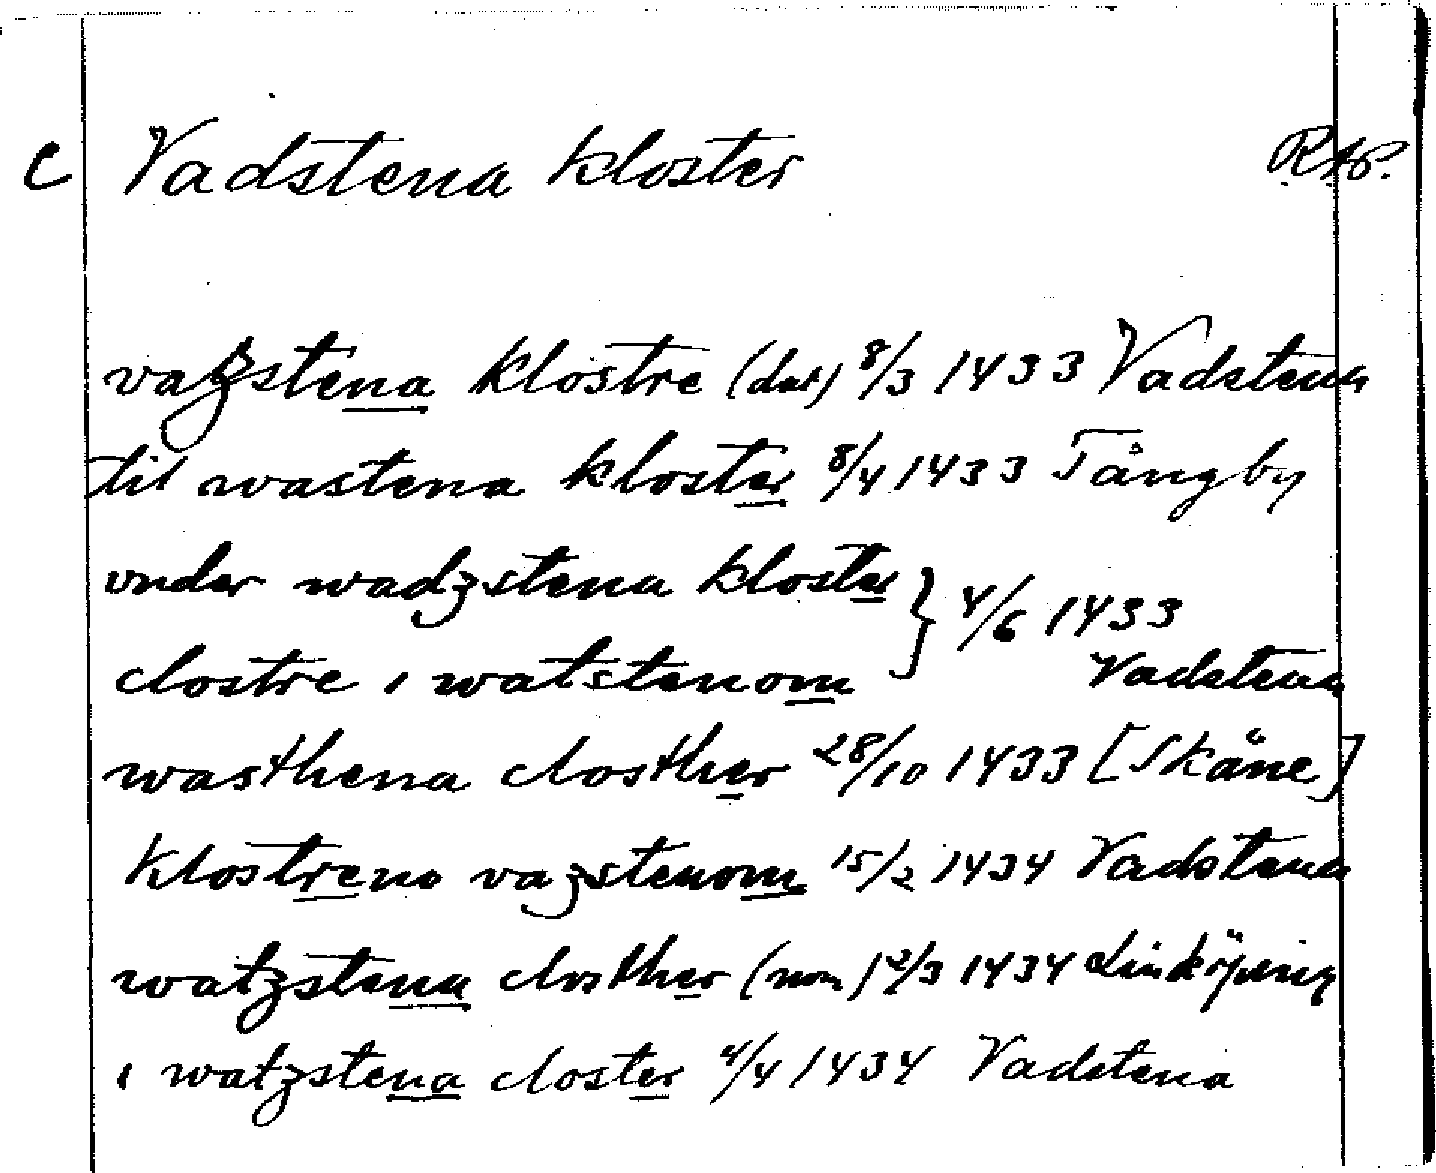 C Vadstena kloster RAP.
vazstena klostre (dat) 8/3 1433 Vadstena
til wastena kloster 8/4 1433 Tångby
vnder wadzstena kloster } 4/6 1433
clostre i watstenom Vadstena
wasthena closther 28/10 1433 [Skåne]
klostreno vazstenom 15/2 1434 Vadstena
watzstena closther (nom) 12/3 1434 Linköping
i watzstena closter 4/4 1434 Vadstena